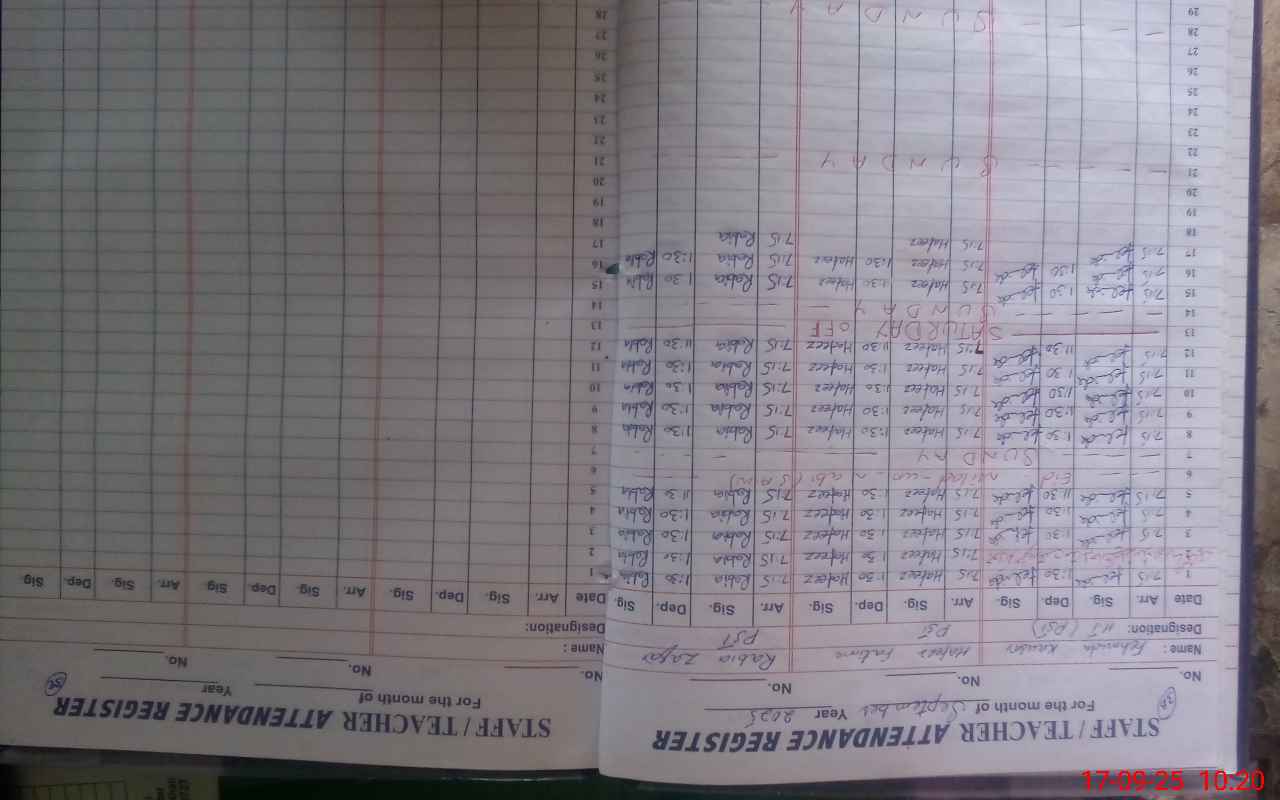 STAFF / TEACHER ATTENDANCE REGISTER
For the month of September Year 2025
No. No. No.
Name : Fehmida Kausar Hafeez Fatima Rabia Zafar
Designation: HT (PST) PST PST
Date Arr. Sig. Dep. Sig. Arr. Sig. Dep. Sig. Arr. Sig. Dep. Sig.
1 7:15 1:30 7:15 Hafeez 1:30 Hafeez 7:15 Rabia 1:30 Rabia
2 7:15 Hafeez 1:30 Hafeez 7:15 Rabia 1:30 Rabia
3 7:15 1:30 7:15 Hafeez 1:30 Hafeez 7:15 Rabia 1:30 Rabia
4 7:15 1:30 7:15 Hafeez 1:30 Hafeez 7:15 Rabia 1:30 Rabia
5 7:15 11:30 7:15 Hafeez 1:30 Hafeez 7:15 Rabia 11:30 Rabia
6 Eid milad-un-nabi (S.A.W)
7 SUNDAY
8 7:15 1:30 7:15 Hafeez 1:30 Hafeez 7:15 Rabia 1:30 Rabia
9 7:15 1:30 7:15 Hafeez 1:30 Hafeez 7:15 Rabia 1:30 Rabia
10 7:15 1:30 7:15 Hafeez 1:30 Hafeez 7:15 Rabia 1:30 Rabia
11 7:15 1:30 7:15 Hafeez 1:30 Hafeez 7:15 Rabia 1:30 Rabia
12 7:15 11:30 7:15 Hafeez 11:30 Hafeez 7:15 Rabia 11:30 Rabia
13 SATURDAY OFF
14 SUNDAY
15 7:15 1:30 7:15 Hafeez 1:30 Hafeez 7:15 Rabia 1:30 Rabia
16 7:15 1:30 7:15 Hafeez 1:30 Hafeez 7:15 Rabia 1:30 Rabia
17 7:15 7:15 Hafeez 7:15 Rabia
18
19
20
21 SUNDAY
22
23
24
25
26
27
28 SUNDAY
29
STAFF / TEACHER ATTENDANCE REGISTER
For the month of Year
No. No. No.
Name :
Designation:
Date Arr. Sig. Dep. Sig. Arr. Sig. Dep. Sig. Arr. Sig. Dep. Sig.
1
2
3
4
5
6
7
8
9
10
11
12
13
14
15
16
17
18
19
20
21
22
23
24
25
26
27
28
17-09-25 10:20